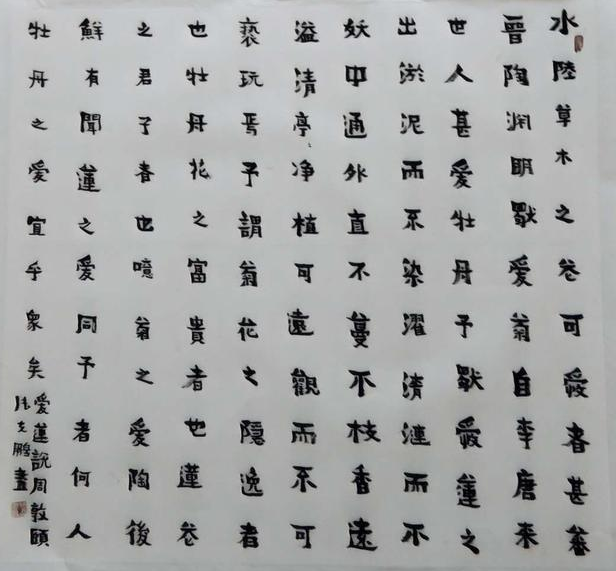 水陸草木之芲可愛者甚蕃
晉陶渊明獨愛菊自李唐來
世人甚愛牡丹予獨愛蓮之
出淤泥而不染濯清漣而不
妖中通外直不蔓不枝香遠
溢清亭々净植可遠觀而不可
亵玩焉予謂菊花之隱逸者
也牡丹花之富貴者也蓮芲
之君子者也噫菊之愛陶後
鮮有聞蓮之愛同予者何人
牡丹之愛宜乎衆矣
愛蓮説周敦頤